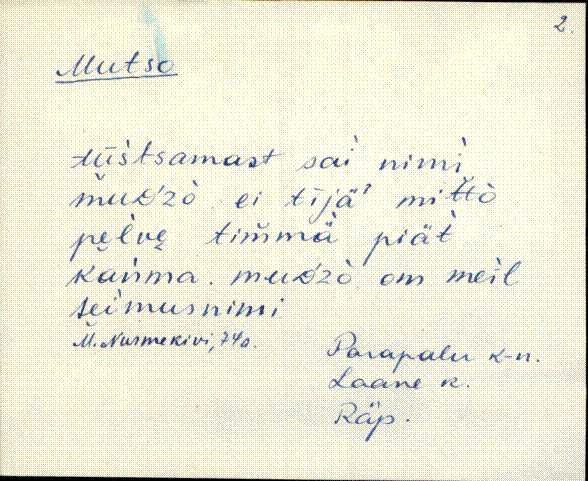 2.
Mutso
tūśtsamast sai nimi
mudźò. ei tījä' mittò
pel̀vę tim̆mä piät
kańma. mudźò om meil
seimusnimi
M. Nurmekivi, 74a.
Parapalu k-n.
Laane k.
Räp.